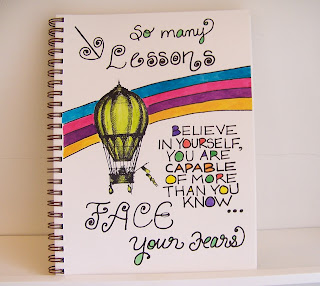 So many
Lessons
BELIEVE
IN YOURSELF,
YOU ARE
CAPABLE
OF MORE
THAN YOU
KNOW...
FACE
your Fears